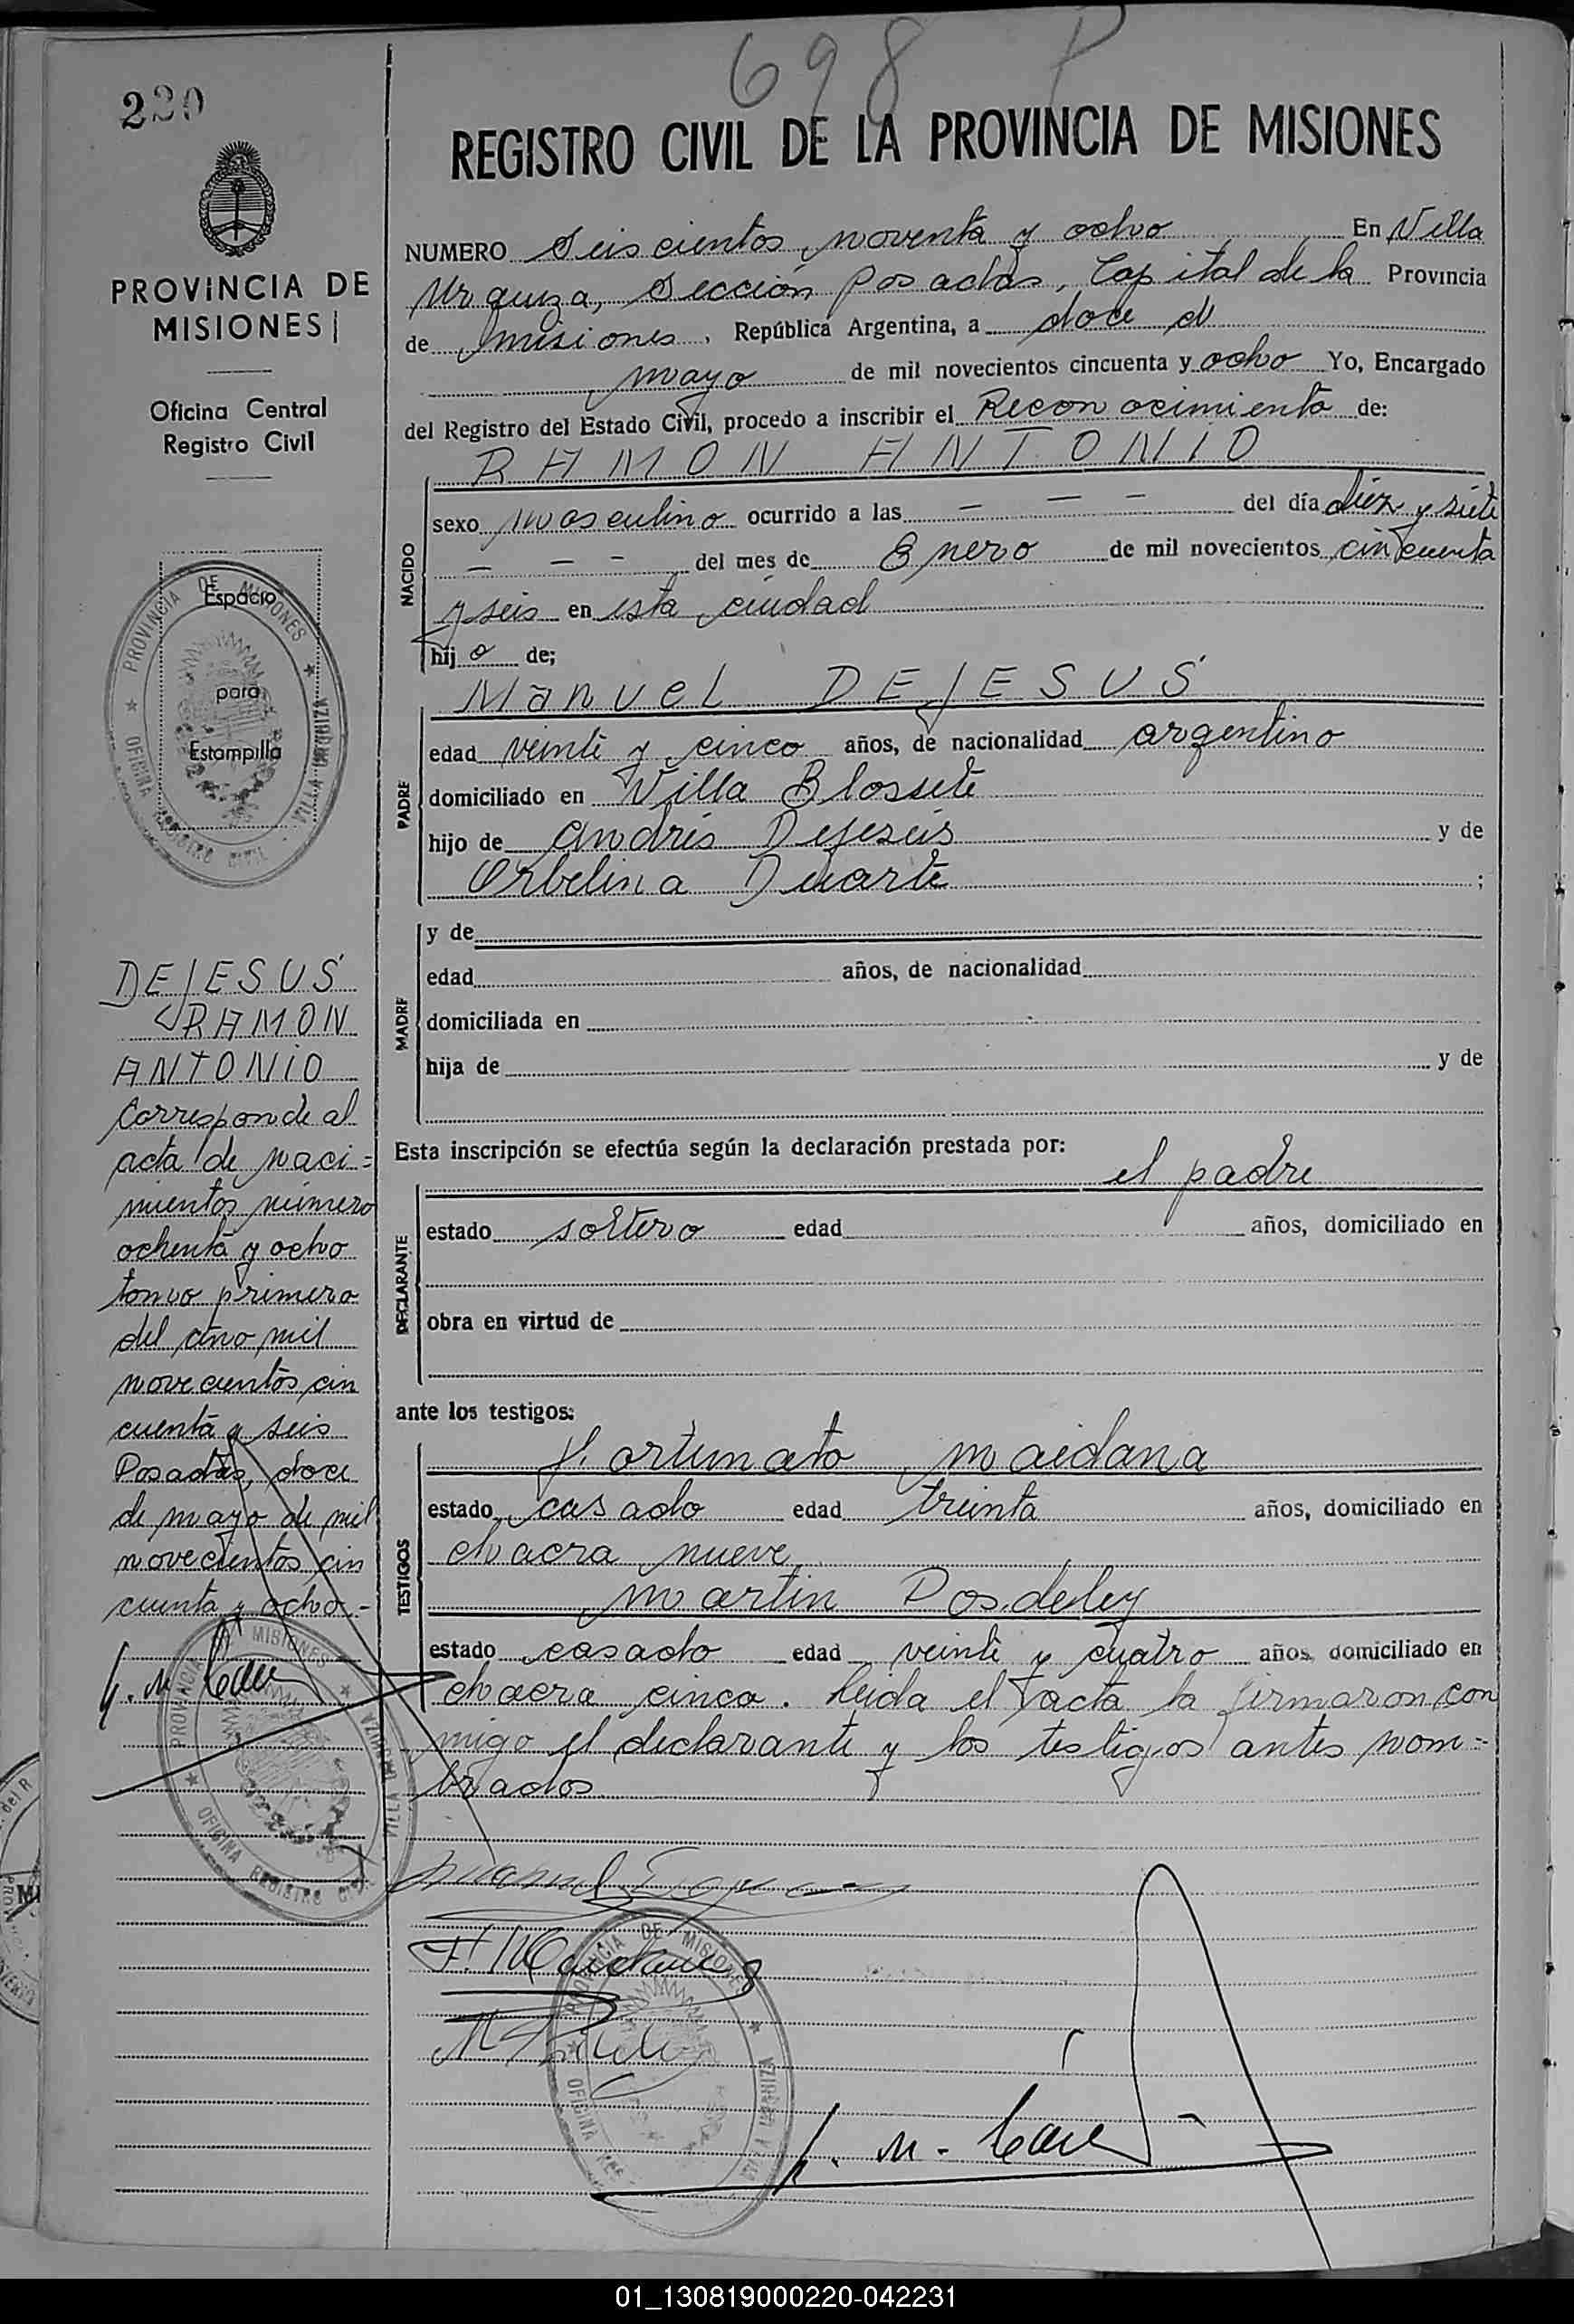 698 P
220
REGISTRO CIVIL DE LA PROVINCIA DE MISIONES
PROVINCIA DE
MISIONES
Oficina Central
Registro Civil
Espacio
para
Estampilla
PROVINCIA DE MISIONES
OFICINA REGISTRO CIVIL - VILLA URQUIZA
NUMERO Seiscientos noventa y ocho En Villa
Urquiza, Sección Posadas, Capital de la Provincia
de misiones, República Argentina, a doce d
mayo de mil novecientos cincuenta y ocho Yo, Encargado
del Registro del Estado Civil, procedo a inscribir el Reconocimiento de:
RAMON ANTONIO
NACIDO
sexo masculino ocurrido a las — — — del día diez y siete
— — — del mes de Enero de mil novecientos cincuenta
y seis en esta ciudad
hijo de;
Manuel DEJESUS
PADRE
edad veinte y cinco años, de nacionalidad argentino
domiciliado en Villa Blossete
hijo de Andrés Dejesús y de
Orbelina Duarte ;
MADRE
y de
edad años, de nacionalidad
domiciliada en
hija de y de
Esta inscripción se efectúa según la declaración prestada por:
el padre
DECLARANTE
estado soltero edad años, domiciliado en
obra en virtud de
ante los testigos:
TESTIGOS
Fortunato maidana
estado casado edad treinta años, domiciliado en
chacra nueve
martin Posdeley
estado casado edad veinte y cuatro años, domiciliado en
chacra cinco. Leida el acta la firmaron con
migo el declarante y los testigos antes nom=
brados
F. Maidana
DEJESUS
RAMON
ANTONIO
Corresponde al
acta de naci=
mientos número
ochenta y ocho
tomo primero
del año mil
novecientos cin
cuenta y seis
Posadas, doce
de mayo de mil
novecientos cin
cuenta y ocho.-
PROVINCIA DE MISIONES
OFICINA REGISTRO CIVIL VILLA URQUIZA
PROVINCIA DE MISIONES
OFICINA VILLA URQUIZA
01_130819000220-042231